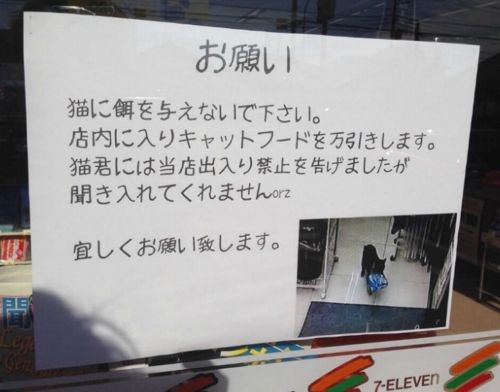 お願い
猫に餌を与えないで下さい。
店内に入りキャットフードを万引きします。
猫君には当店出入り禁止を告げましたが
聞き入れてくれませんorz
宜しくお願い致します。
聞
7-ELEVEn